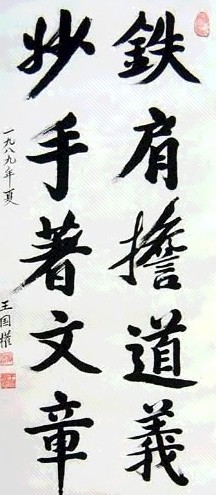 鉄肩擔道義
妙手著文章
一九八九年夏
王国權